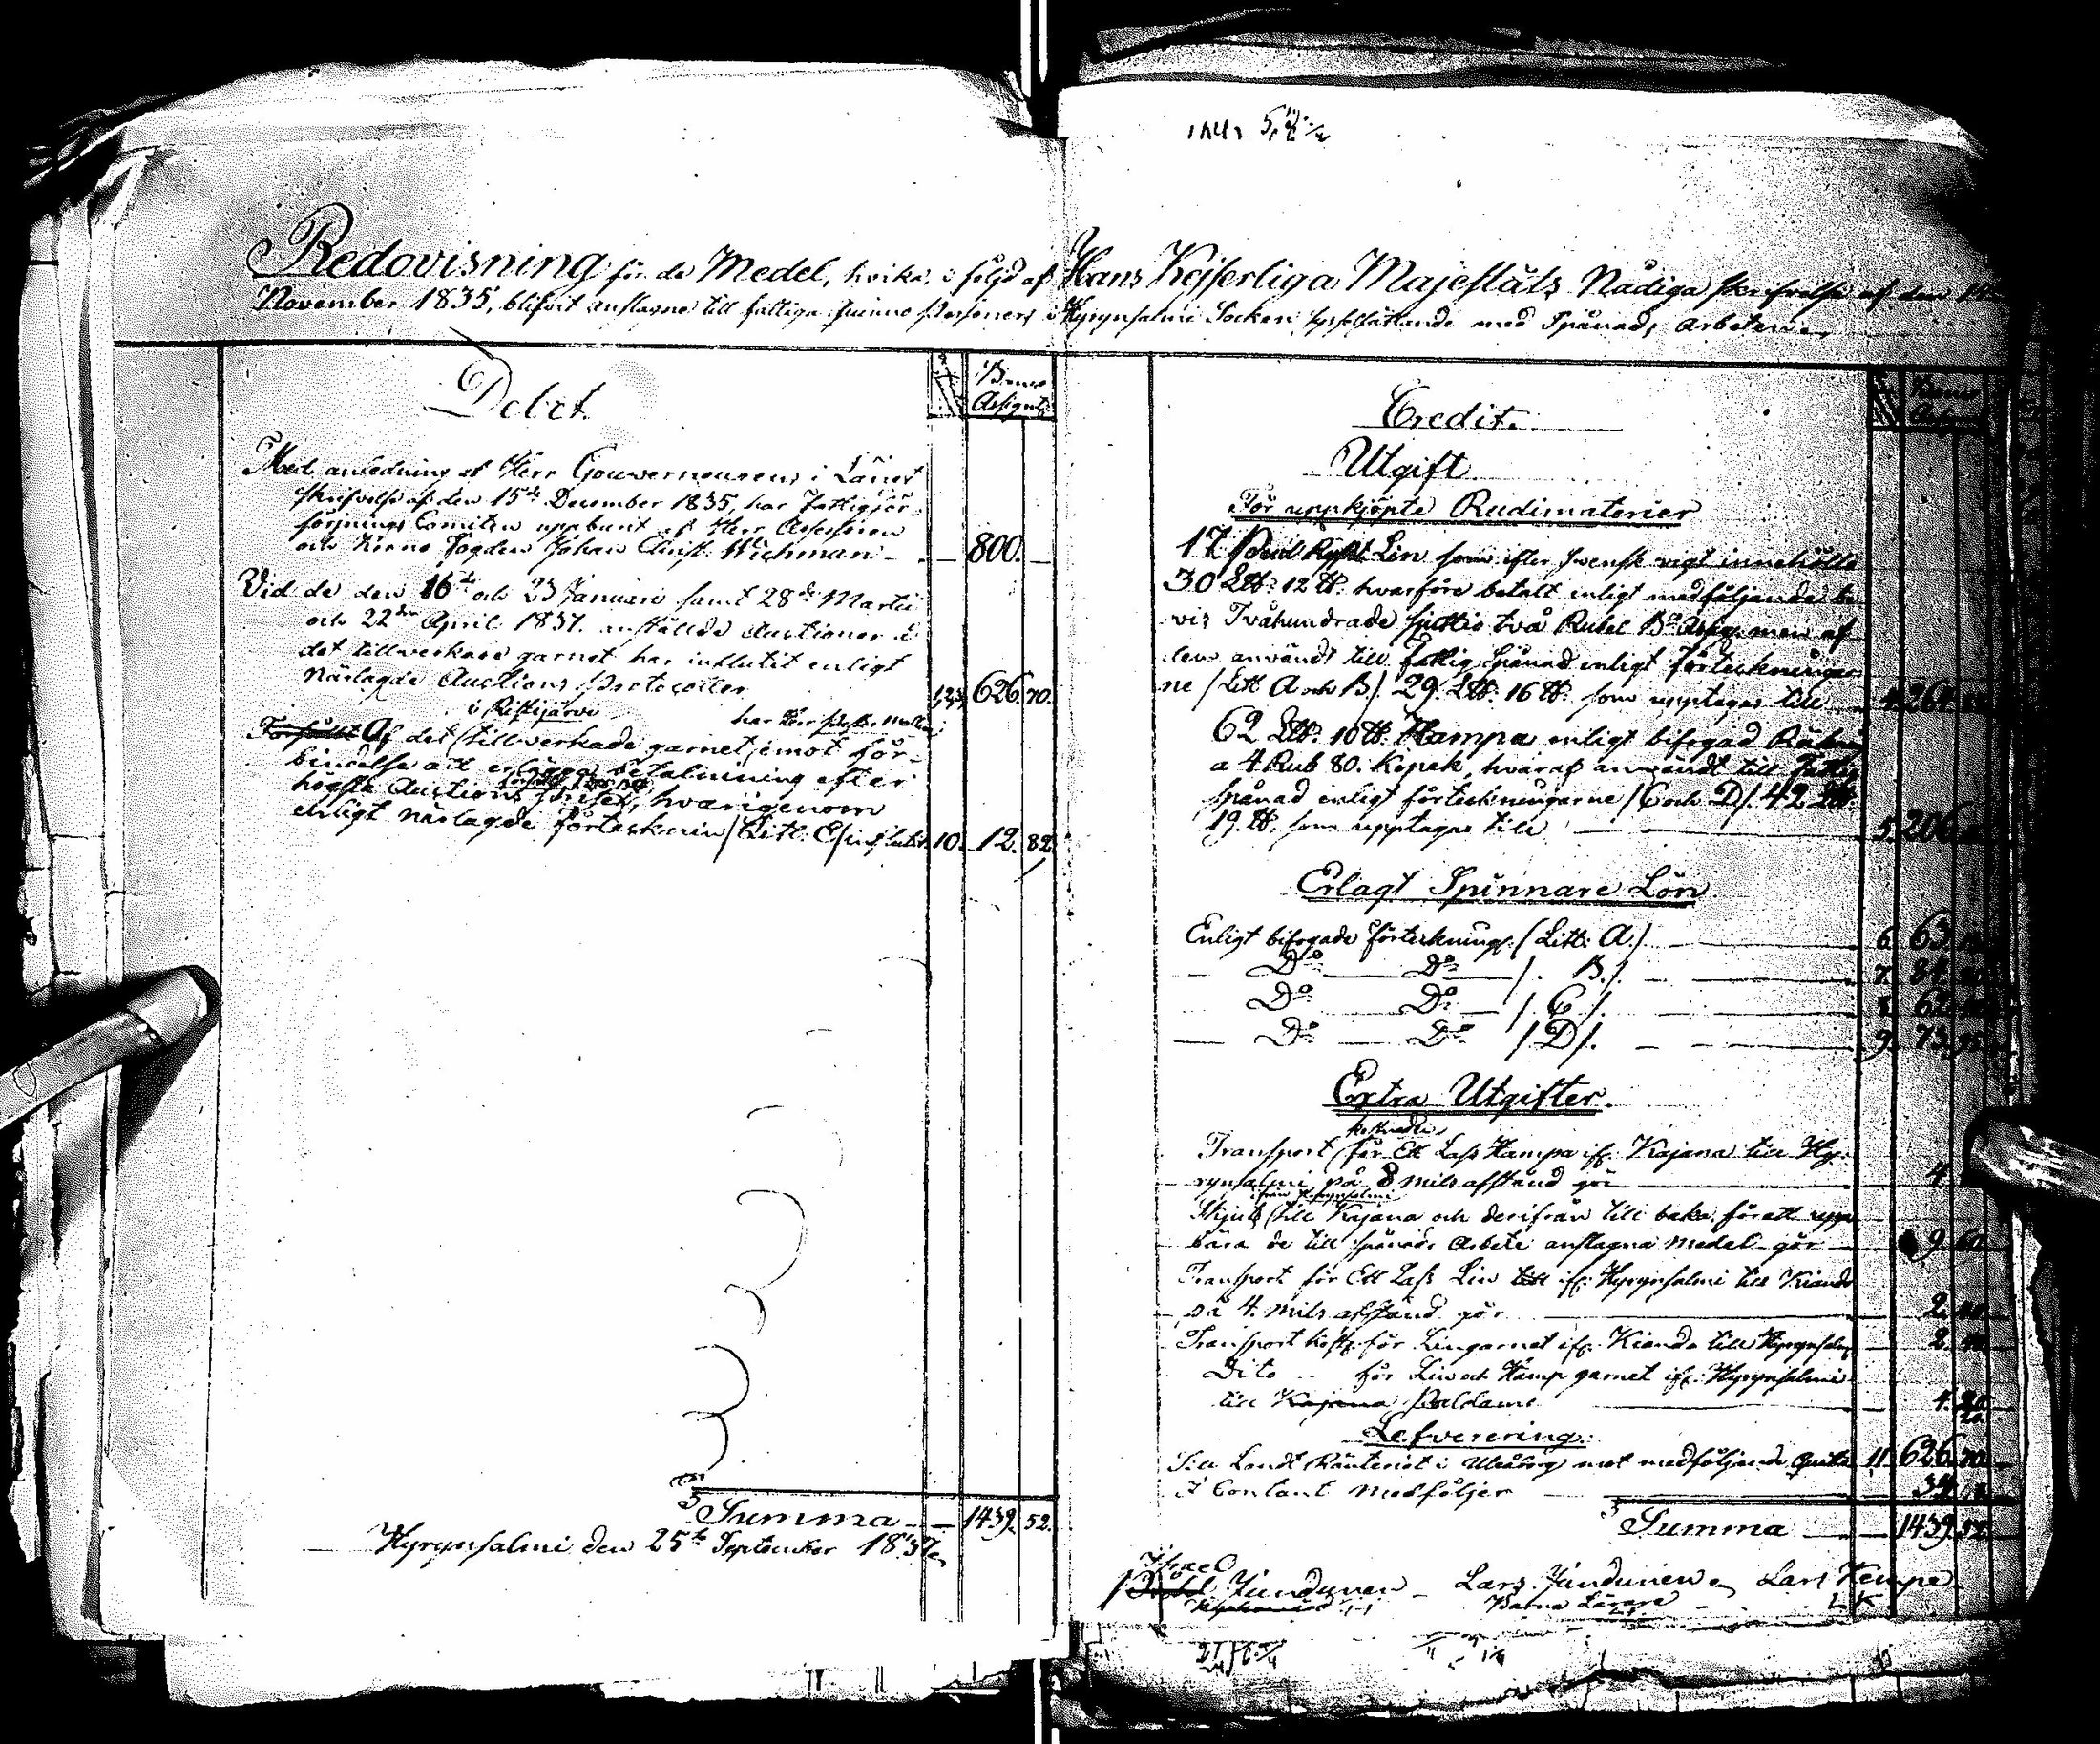 Redovisning för de Medel, hvilka, i följd af Hans Kejserliga Majestäts Nådiga skrifvelse af den
November 1835, blifvit anslagne till fattiga qvinno Personers i Hyrynsalmi Socken sysselsättande med Spånads Arbeten
Debet.
Banco
Assignt.
Med anledning af Herr Gouverneurens i Länet
skrifvelse af den 15de December 1835, har Fattigför-
sörjnings Comitén uppburit af Herr Assessoren
och Krono Fogden Johan Christ. Wichman — — 800. —
Vid de den 16de och 23 Januari samt 28de Martii
och 22dra April 1837. anställde Auctioner å
det tillverkade garnet har influtit enligt
närlagde Auctions Protocoller 1,2,3, 626. 70.
i Ristijärvi har Herr
Af det tillverkade garnet, emot för-
bindelse att erlägga betalning efter
högsta Auctions priset, hvarigenom
enligt närlagde förteckning /Litt. E/ influtit 10. 12. 82.
Summa — 1439. 52.
Hyrynsalmi den 25te September 1837
Credit.
Utgift
För uppköpte Rudimaterier
17 Pud Ryskt Lin som efter Svensk vigt innehölle
30 L℔: 12 ℔. hvarföre betalt enligt medföljande be-
vis Tvåhundrade sjuttio två Rubel Bco Assign. men af
den användt till Fattig Spånad enligt förteckningar
ne /Litt A och B/. 29. L℔: 16 ℔: som upptages till 4. 264.
62 L℔: 10 ℔. Hampa enligt bifogad Räkning
a 4 Rub 80. Kopek, hvaraf användt till Fattig
Spånad enligt förteckningarne /C och D/. 42 L℔.
19. ℔. som upptages till 5. 206.
Erlagt Spinnare Lön
Enligt bifogade förteckning (Litt: A.) 6. 63.
— Do — Do — /. B./. — 7. 81.
Do Do — /. C /. 8. 62.
— Do — Do /. D/. — 9. 73. 95.
Extra Utgifter.
kostnader
Transport för Ett Lass Hampa ifr. Kajana till Hy-
rynsalmi på 8 mils afstånd gör 4.
ifrån Hyrynsalmi
Skjuts till Kajana och derifrån till baka för att upp
bära de till spånads Arbete anslagna medel gör 9. 60.
Transport för Ett Lass Lin ifr. Hyrynsalmi till Kiando
på 4. mils afstånd gör 2. 40.
Transport kostn. för Lingarnet ifr. Kiando till Hyrynsalmi 2. 40.
Dito för Lin och Hamp garnet ifr. Hyrynsalmi
till Kajana Paldamo 4. 20.
Lefverering.
Till Landt Ränteriet i Uleåborg mot medföljande Quitto 11. 626. 70.
I Contant medföljer 34.
Summa — 1439. 52.
Israel
Jundunen — Lars Jundunen Lars Kempe
Barna Lärare L K